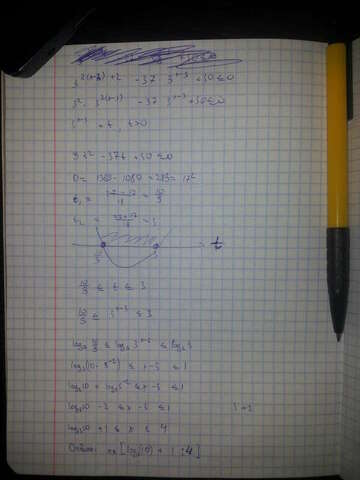 3^{2(x-3)+2} - 37 · 3^{x-3} + 30 ≤ 0
3² · 3^{2(x-3)} - 37 · 3^{x-3} + 30 ≤ 0
3^{x-3} = t, t>0
9t² - 37t + 30 ≤ 0
D = 1369 - 1080 = 289 = 17²
t₁ = (37-17)/18 = 10/9
t₂ = (37+17)/18 = 3
10/9 3 t
10/9 ≤ t ≤ 3
10/9 ≤ 3^{x-3} ≤ 3
log₃ 10/9 ≤ log₃ 3^{x-3} ≤ log₃ 3
log₃(10 · 3^{-2}) ≤ x-3 ≤ 1
log₃10 + log₃3^{-2} ≤ x-3 ≤ 1
log₃10 - 2 ≤ x-3 ≤ 1
log₃10 + 1 ≤ x ≤ 4
Ответ: x∈[log₃(10) + 1; 4]